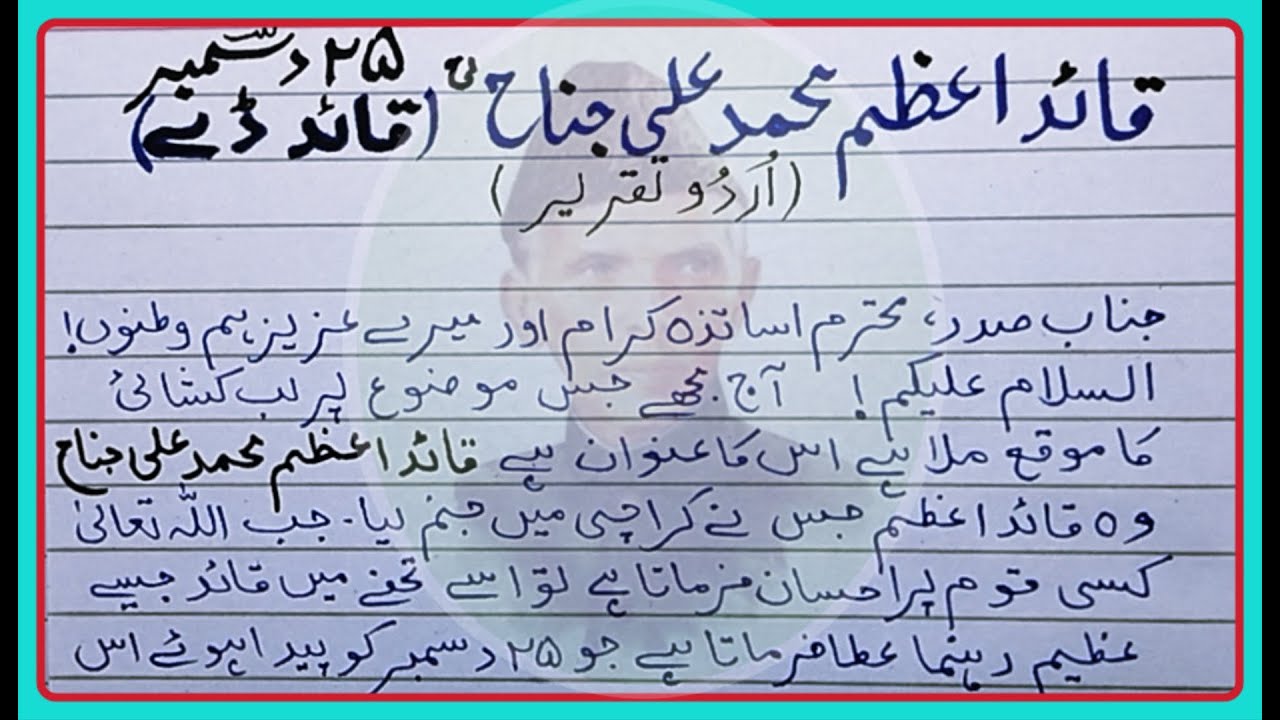 ۲۵ دسمبر
قائداعظم محمد علی جناحؒ (قائد ڈے)
(اُردُو تقریر)
جناب صدر، محترم اساتذہ کرام اور میرے عزیز ہم وطنوں!
السلام علیکم! آج مجھے جس موضوع پر لب کشائی
کا موقع ملا ہے اس کا عنوان ہے قائداعظم محمد علی جناح
وہ قائداعظم جس نے کراچی میں جنم لیا۔ جب اللہ تعالیٰ
کسی قوم پر احسان فرماتا ہے تو اسے تحفے میں قائد جیسے
عظیم رہنما عطا فرماتا ہے جو ۲۵ دسمبر کو پیدا ہوئے اس